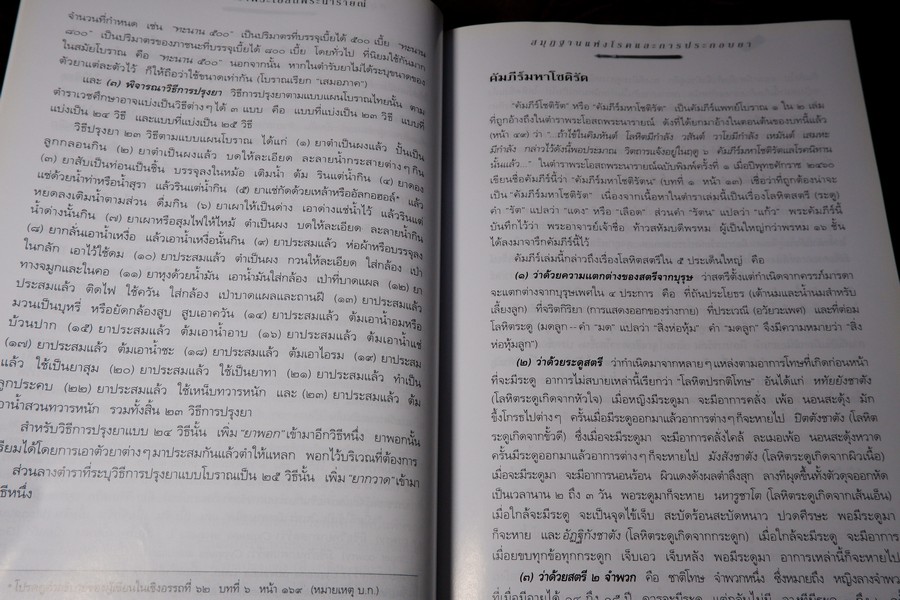 จำนวนที่กำหนด เช่น "ทะนาน ๕๐๐" เป็นปริมาตรที่บรรจุเบี้ยได้ ๕๐๐ เบี้ย "ทะนาน
๘๐๐" เป็นปริมาตรของภาชนะที่บรรจุเบี้ยได้ ๘๐๐ เบี้ย โดยทั่วไป ที่นิยมใช้กันมาก
ในสมัยโบราณ คือ "ทะนาน ๕๐๐" นอกจากนั้น หากในตำรับยาไม่ได้ระบุขนาดของ
ตัวยาแต่ละตัวไว้ ก็ให้ถือว่าใช้ขนาดเท่ากัน (โบราณเรียก "เสมอภาค")
และ (๓) พิจารณาวิธีการปรุงยา วิธีการปรุงยาตามแบบแผนโบราณไทยนั้น ตาม
ตำราเวชศึกษาอาจแบ่งเป็นวิธีต่างๆ ได้ ๓ แบบ คือ แบบที่แบ่งเป็น ๒๓ วิธี แบบที่
แบ่งเป็น ๒๔ วิธี และแบบที่แบ่งเป็น ๒๕ วิธี
วิธีปรุงยา ๒๓ วิธีตามแบบแผนโบราณ ได้แก่ (๑) ยาตำเป็นผงแล้ว ปั้นเป็น
ลูกกลอนกิน (๒) ยาตำเป็นผงแล้ว บดให้ละเอียด ละลายน้ำกระสายต่างๆ กิน
(๓) ยาสับเป็นท่อนเป็นชิ้น บรรจุลงในหม้อ เติมน้ำ ต้ม รินแต่น้ำกิน (๔) ยาดอง
แช่ด้วยน้ำท่าหรือน้ำสุรา แล้วรินแต่น้ำกิน (๕) ยาแช่กัดด้วยเหล้าหรืออัลกอฮอล์* แล้ว
หยดลงเติมน้ำตามส่วน ดื่มกิน (๖) ยาเผาให้เป็นด่าง เอาด่างแช่น้ำไว้ แล้วรินแต่
น้ำด่างนั้นกิน (๗) ยาเผาหรือสุมไฟให้ไหม้ ตำเป็นผง บดให้ละเอียด ละลายน้ำกิน
(๘) ยากลั่นเอาน้ำเหงื่อ แล้วเอาน้ำเหงื่อนั้นกิน (๙) ยาประสมแล้ว ห่อผ้าหรือบรรจุลง
ในกลัก เอาไว้ใช้ดม (๑๐) ยาประสมแล้ว ตำเป็นผง กวนให้ละเอียด ใส่กล้อง เป่า
ทางจมูกและในคอ (๑๑) ยาหุงด้วยน้ำมัน เอาน้ำมันใส่กล้อง เป่าที่บาดแผล (๑๒) ยา
ประสมแล้ว ติดไฟ ใช้ควัน ใส่กล้อง เป่าบาดแผลและฐานฝี (๑๓) ยาประสมแล้ว
มวนเป็นบุหรี่ หรือยัดกล้องสูบ สูบเอาควัน (๑๔) ยาประสมแล้ว ต้มเอาน้ำอมหรือ
บ้วนปาก (๑๕) ยาประสมแล้ว ต้มเอาน้ำอาบ (๑๖) ยาประสมแล้ว ต้มเอาน้ำแช่
(๑๗) ยาประสมแล้ว ต้มเอาน้ำชะ (๑๘) ยาประสมแล้ว ต้มเอาไอรม (๑๙) ยาประสม
แล้ว ใช้เป็นยาสุม (๒๐) ยาประสมแล้ว ใช้เป็นยาทา (๒๑) ยาประสมแล้ว ทำเป็น
ลูกประคบ (๒๒) ยาประสมแล้ว ใช้เหน็บทวารหนัก และ (๒๓) ยาประสมแล้ว ต้ม
เอาน้ำสวนทวารหนัก รวมทั้งสิ้น ๒๓ วิธีการปรุงยา
สำหรับวิธีการปรุงยาแบบ ๒๔ วิธีนั้น เพิ่ม "ยาพอก" เข้ามาอีกวิธีหนึ่ง ยาพอกนั้น
เตรียมได้โดยการเอาตัวยาต่างๆ มาประสมกันแล้วตำให้แหลก พอกไว้บริเวณที่ต้องการ
ส่วนลางตำราที่ระบุวิธีการปรุงยาแบบโบราณเป็น ๒๕ วิธีนั้น เพิ่ม "ยากวาด" เข้ามา
วิธีหนึ่ง
เชิงอรรถที่ ๖๒ บทที่ ๖ หน้า ๑๖๙ (หมายเหตุ บ.ก.)
สมุฏฐานแห่งโรคและการประกอบยา
คัมภีร์มหาโชติรัต
"คัมภีร์โชติรัต" หรือ "คัมภีร์มหาโชติรัต" เป็นคัมภีร์แพทย์โบราณ ๑ ใน ๒ เล่ม
ที่ถูกอ้างถึงในตำราพระโอสถพระนารายณ์ ดังที่ได้ยกมาอ้างในตอนต้นของบทนี้แล้ว
(หน้า ๔๙) ว่า "...ถ้าใช้ในคิมหันต์ โลหิตมีกำลัง วสันต์ วาโยมีกำลัง เหมันต์ เสมหะ
มีกำลัง กล่าวไว้ดังนี้พอประมาณ วิตถารแจ้งอยู่ในฤดู ๖ คัมภีร์มหาโชติรัตแลโรคนิทาน
นั้นแล้ว..." ในตำราพระโอสถพระนารายณ์ฉบับพิมพ์ครั้งที่ ๑ เมื่อปีพุทธศักราช ๒๔๖๐
เขียนชื่อคัมภีร์นี้ว่า "คัมภีร์มหาโชติรัตน" (บทที่ ๑ หน้า ๑๓) เชื่อว่าที่ถูกต้องน่าจะ
เป็น "คัมภีร์มหาโชติรัต" เนื่องจากเนื้อหาในตำราเล่มนี้เป็นเรื่องโลหิตสตรี (ระดู)
คำ "รัต" แปลว่า "แดง" หรือ "เลือด" ส่วนคำ "รัตน" แปลว่า "แก้ว" พระคัมภีร์นี้
บันทึกไว้ว่า พระอาจารย์เจ้าชื่อ ท้าวสหัมบดีพรหม ผู้เป็นใหญ่กว่าพรหม ๑๖ ชั้น
ได้ลงมาจาริึกคัมภีร์นี้ไว้
คัมภีร์เล่มนี้กล่าวถึงเรื่องโลหิตสตรีใน ๕ ประเด็นใหญ่ คือ
(๑) ว่าด้วยความแตกต่างของสตรีจากบุรุษ ว่าสตรีตั้งแต่กำเนิดจากครรภ์มารดา
จะแตกต่างจากบุรุษเพศใน ๔ ประการ คือ ที่ถันประโยธร (เต้านมและน้ำนมสำหรับ
เลี้ยงลูก) ที่จริตกิริยา (การแสดงออกของร่างกาย) ที่ประเวณี (อวัยวะเพศ) และที่ต่อม
โลหิตระดู (มดลูก -- คำ "มด" แปลว่า "สิ่งห่อหุ้ม" คำ "มดลูก" จึงมีความหมายว่า "สิ่ง
ห่อหุ้มลูก")
(๒) ว่าด้วยระดูสตรี ว่ากำเนิดมาจากหลายๆ แหล่งตามอาการโทษที่เกิดก่อนหน้า
ที่จะมีระดู อาการไม่สบายเหล่านี้เรียกว่า "โลหิตปรกติโทษ" อันได้แก่ หทัยยังชาตัง
(โลหิตระดูเกิดจากหัวใจ) เมื่อหญิงมีระดูมา จะมีอาการคลั่ง เพ้อ นอนสะดุ้ง มัก
ขึ้งโกรธไปต่างๆ ครั้นเมื่อมีระดูออกมาแล้วอาการต่างๆ ก็จะหายไป ปิตตังชาตัง (โลหิต
ระดูเกิดจากขั้วดี) ซึ่งเมื่อจะมีระดูมา จะมีอาการคลั่งไคล้ ละเมอเพ้อ นอนสะดุ้งหวาด
ครั้นมีระดูออกมาแล้วอาการต่างๆ ก็จะหายไป มังสังชาตัง (โลหิตระดูเกิดจากผิวเนื้อ)
เมื่อจะมีระดูมา จะมีอาการนอนร้อน ผิวแดงดังผลตำลึงสุก ลางทีผุดขึ้นทั้งตัวดุจออกหัด
เป็นเวลานาน ๒ ถึง ๓ วัน พอระดูมาก็จะหาย นหารูชาโต (โลหิตระดูเกิดจากเส้นเอ็น)
เมื่อใกล้จะมีระดู จะเป็นดุจไข้เจ็บ สะบัดร้อนสะบัดหนาว ปวดศีรษะ พอมีระดูมา
ก็จะหาย และอัฏฐิกังชาตัง (โลหิตระดูเกิดจากกระดูก) เมื่อใกล้จะมีระดู จะมีอาการ
เมื่อยขบทุกข้อทุกกระดูก เจ็บเอว เจ็บหลัง พอมีระดูมา อาการเหล่านี้ก็จะหายไป
(๓) ว่าด้วยสตรี ๒ จำพวก คือ ชาติโทษ จำพวกหนึ่ง ซึ่งหมายถึง หญิงลางจำพวก